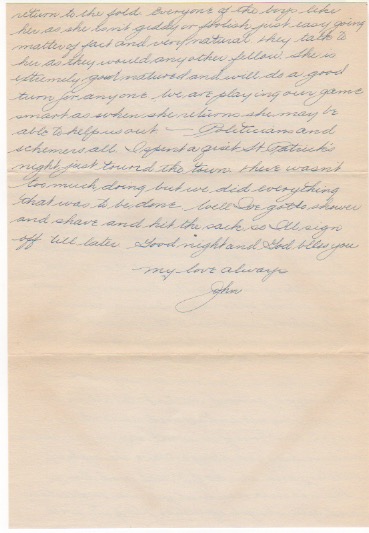 return to the fold. Everyone of the boys like
her as she isn't giddy or foolish, just easy going
matter of fact and very natural they talk to
her as they would any other fellow. She is
extremely good natured and will do a good
turn for anyone. We are playing our game
smart as when she returns she may be
able to help us out — Politicians and
schemers all. I spent a quiet St Patrick's
night just round the town there wasn't
too much doing but we did everything
that was to be done. Well I've got to shower
and shave and hit the sack so I'll sign
off till later. Good night and God bless you
my love always
John